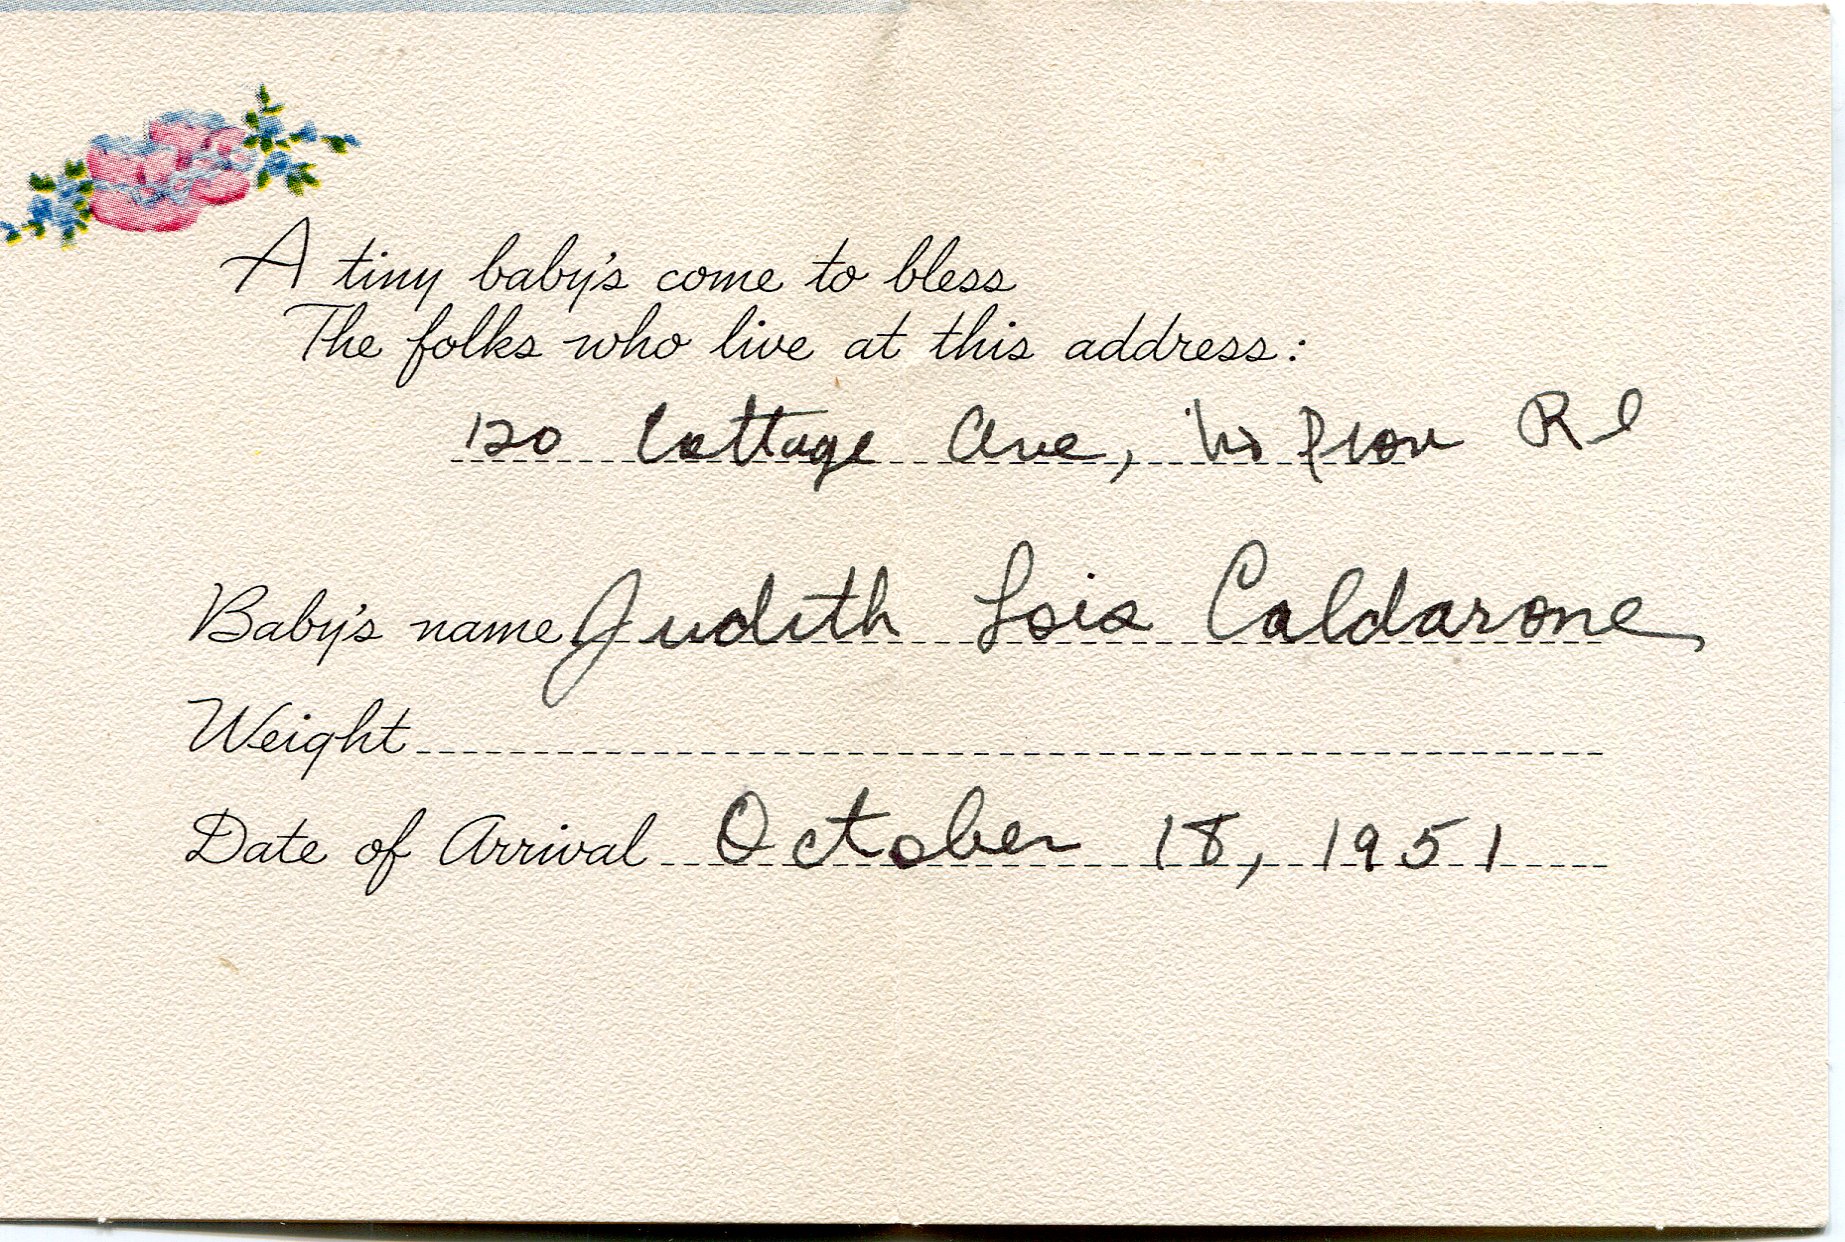 A tiny baby's come to bless
The folks who live at this address:
120 Cottage Ave, No Prov R I
Baby's name Judith Lois Caldarone
Weight
Date of Arrival October 18, 1951